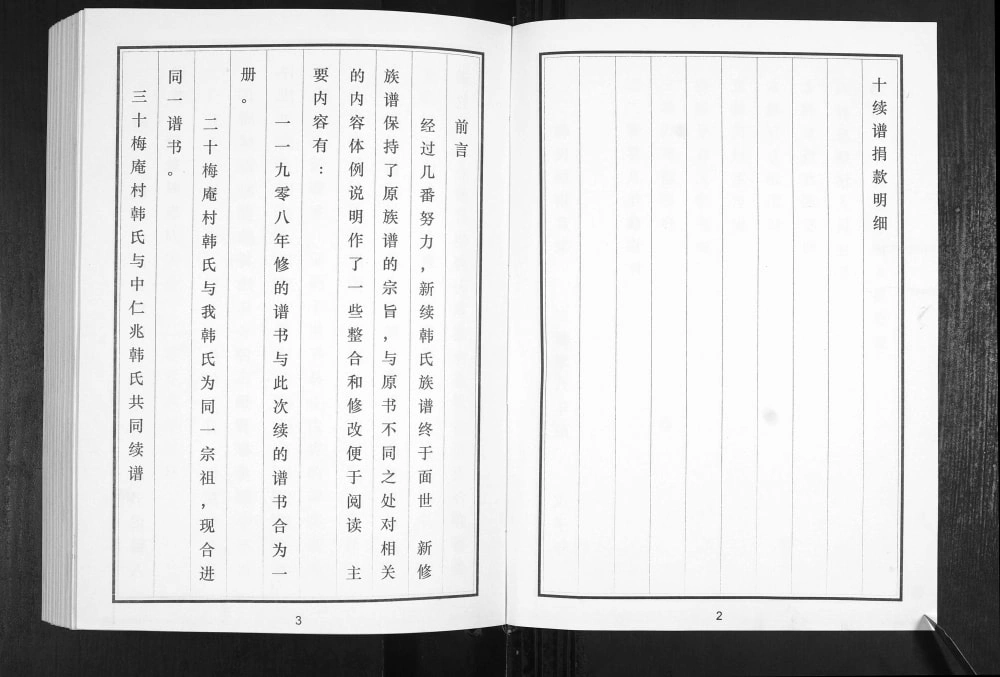 十续谱捐款明细
2
前言
经过几番努力，新续韩氏族谱终于面世 新修
族谱保持了原族谱的宗旨，与原书不同之处对相关
的内容体例说明作了一些整合和修改便于阅读 主
要内容有：
一一九零八年修的谱书与此次续的谱书合为一
册。
二十梅庵村韩氏与我韩氏为同一宗祖，现合进
同一谱书。
三十梅庵村韩氏与中仁兆韩氏共同续谱
3